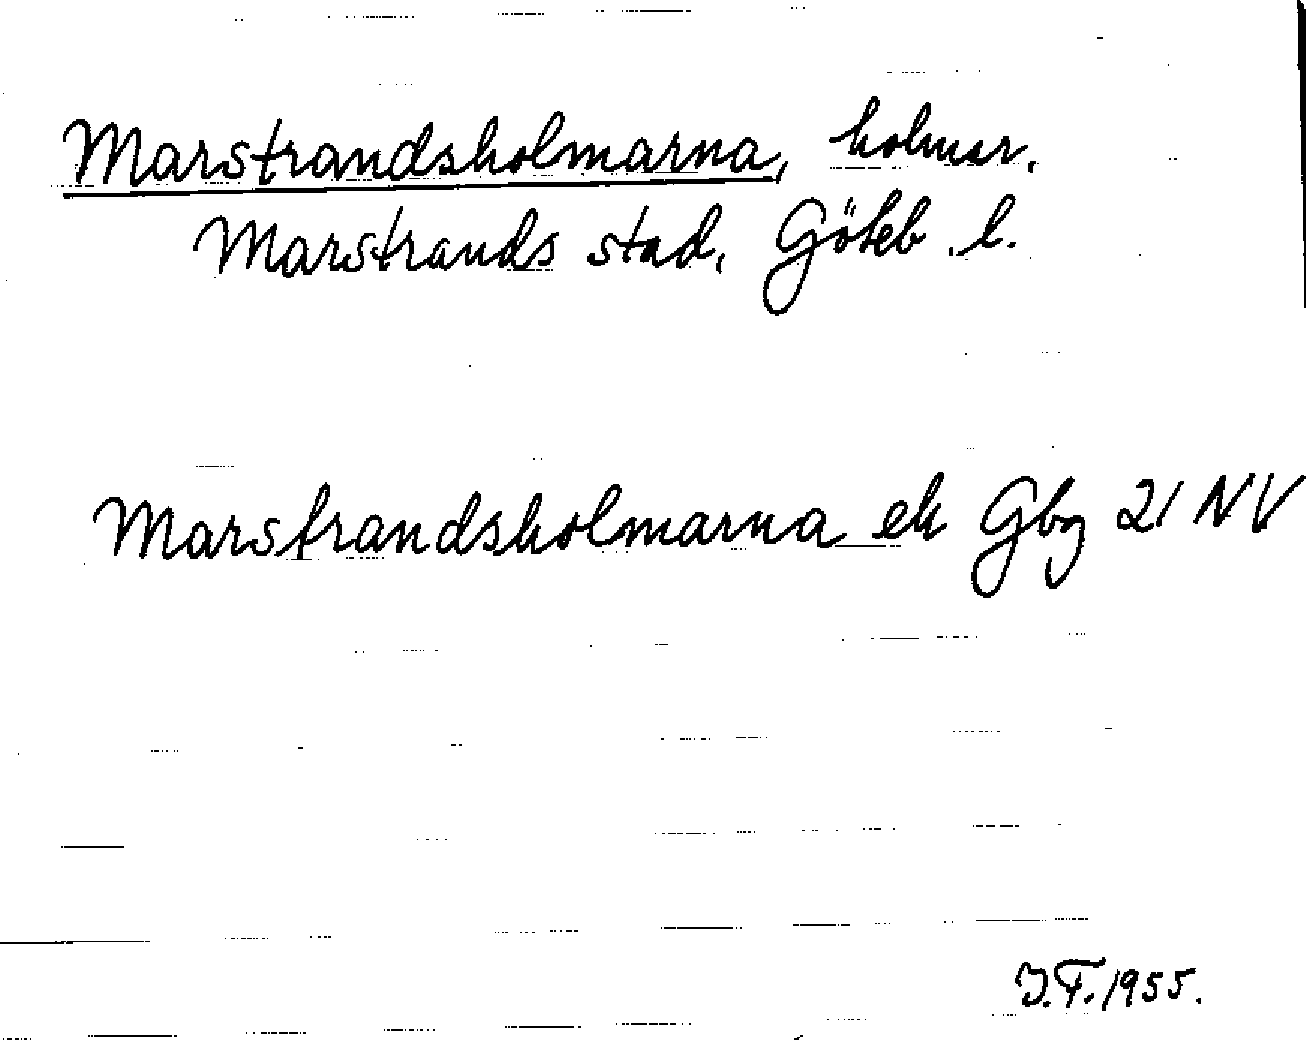 Marstrandsholmarna, holmar.
Marstrands stad, Göteb. l.
Marstrandsholmarna ek Gbg 21 NV
J.F. 1955.